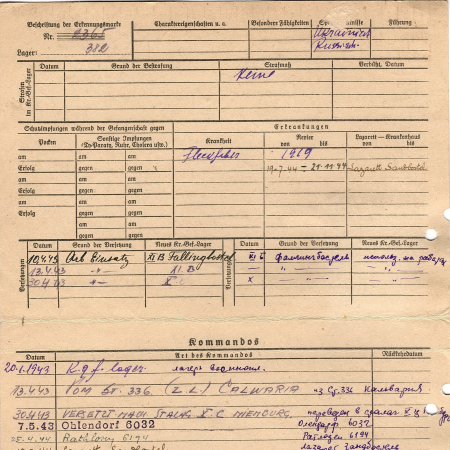 Beschriftung der Erkennungsmarke
Nr. 2365
Lager: 382
Charaktereigenschaften u. a.
Besondere Fähigkeiten
Ukrainisch
Russisch
Führung
Strafen im Kr.-Gef.-Lager
Datum Grund der Bestrafung Strafmaß Verbüßt, Datum
Keine
Schutzimpfungen während der Gefangenschaft gegen
Erkrankungen
Pocken
Sonstige Impfungen (Ty-Paraty, Ruhr, Cholera usw.)
Krankheit
Revier
von bis
Lazarett — Krankenhaus
von bis
am am am
Erfolg gegen gegen
am am am
Erfolg gegen gegen
am am am
Erfolg gegen gegen
am am
gegen gegen
Fleckfieber 1919
19.7.44 – 21.11.44 Lazarett Sandbostel
Versetzungen
Datum Grund der Versetzung Neues Kr.-Gef.-Lager
Grund der Versetzung Neues Kr.-Gef.-Lager
10.4.43 Arb Einsatz XI B Fallingbostel
XI B фаллингбостель использ. на работах
13.4.43 " XI B
30.4.43 " X
Kommandos
Datum Art des Kommandos Rückkehrdatum
20.1.1943 K.g.f. lager.
13.4.43 VOM ST. 336 (Z.L.) CALWARIA из Ст. 336 Кальвария
30.4.43 VERSETZT NACH STALAG X C NIENBURG. переведен в шталаг X Ц
7.5.43 Ohlendorf 6032 Олендорф 6032
25.4.44 Rathlosen 6194 Ратлозен 6194
лазарет Зандбостель